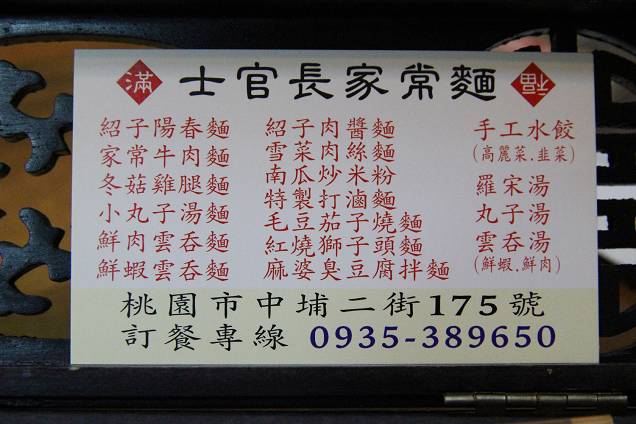 滿 士官長家常麵 福
紹子陽春麵
家常牛肉麵
冬菇雞腿麵
小丸子湯麵
鮮肉雲吞麵
鮮蝦雲吞麵
紹子肉醬麵
雪菜肉絲麵
南瓜炒米粉
特製打滷麵
毛豆茄子燒麵
紅燒獅子頭麵
麻婆臭豆腐拌麵
手工水餃
(高麗菜.韭菜)
羅宋湯
丸子湯
雲吞湯
(鮮蝦.鮮肉)
桃園市中埔二街175號
訂餐專線 0935-389650